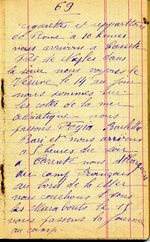 69
cigarettes et repartons
et Rome à 10 heures
nous arrivons à
Près de Naples dans
la soirée nous voyons le
Vésuve le 14 au jour
nous sommes sur
les cotés de la mer
adriatique nous
passons Foggia Barletta
Bari et nous arrivons
à heures du soir
a Tarente nous
au camp français
au bord de la Mer
nous couchons sous
les Marabouts le 15
nous passons la journée
au camp